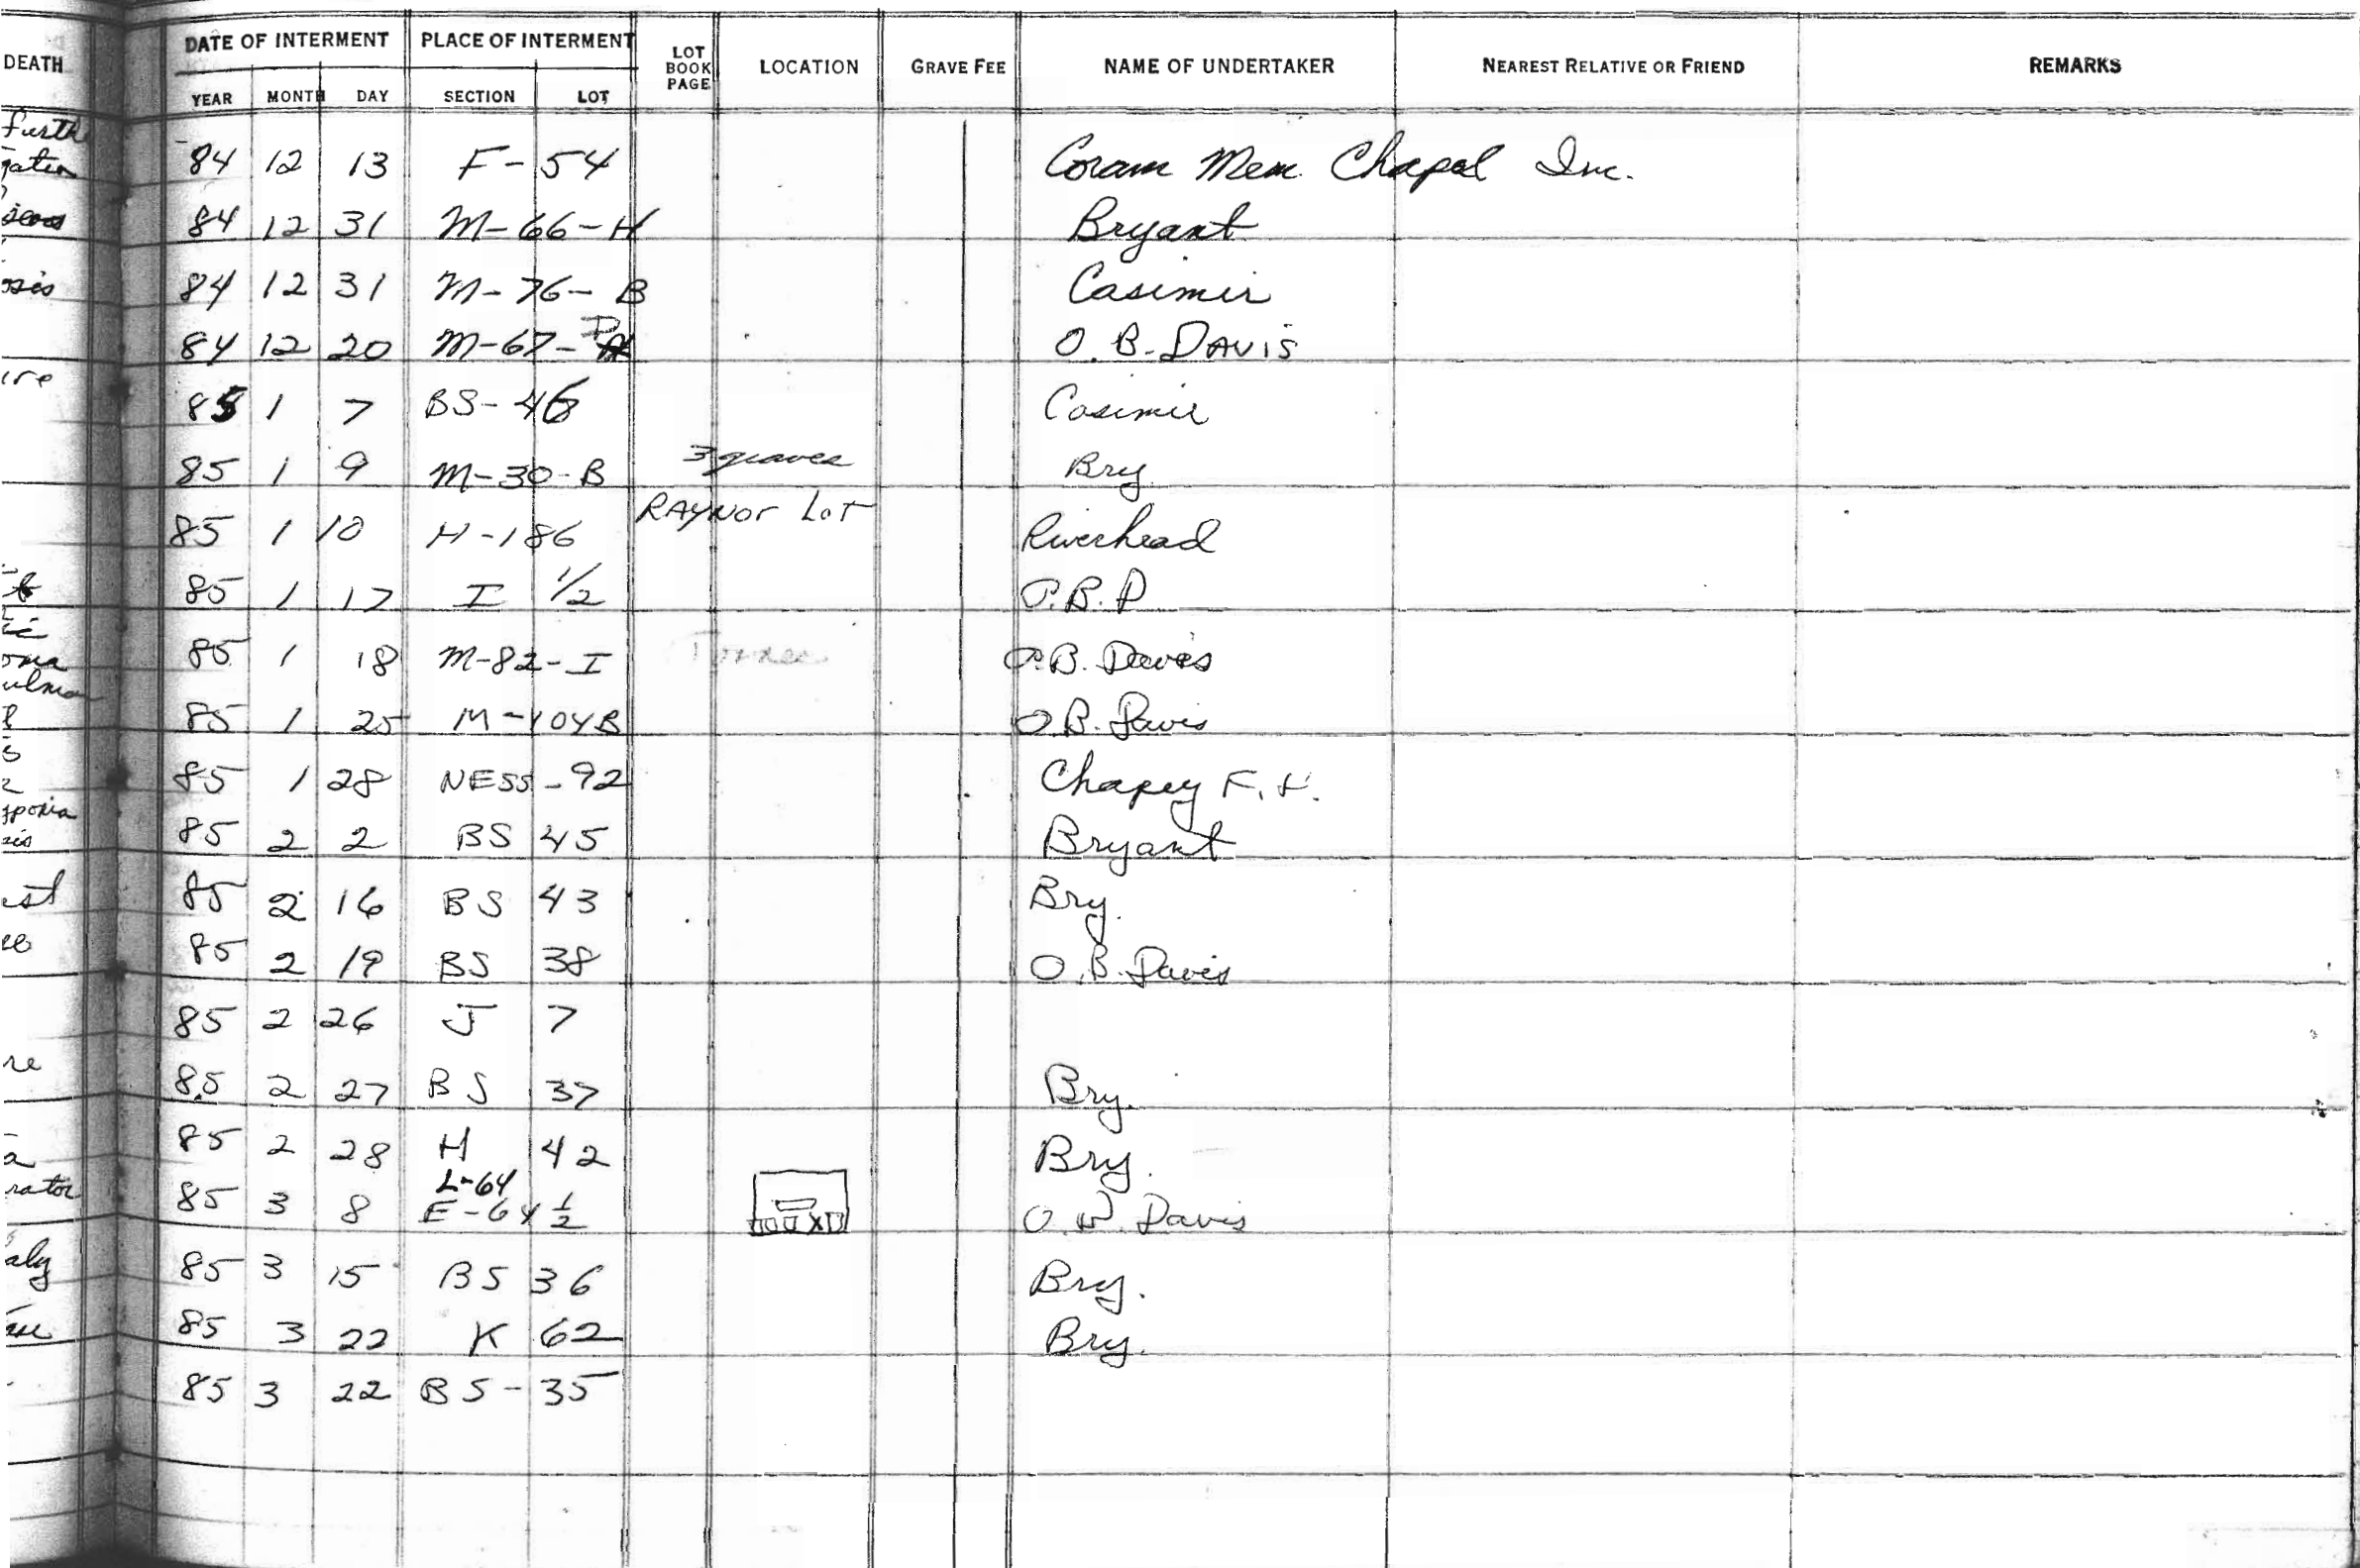 DEATH DATE OF INTERMENT PLACE OF INTERMENT LOT BOOK PAGE LOCATION GRAVE FEE NAME OF UNDERTAKER NEAREST RELATIVE OR FRIEND REMARKS
YEAR MONTH DAY SECTION LOT
furth
84 12 13 F - 54 Coram Mem. Chapel Inc.
84 12 31 M - 66 - H Bryant
84 12 31 M - 76 - B Casimir
84 12 20 M - 67 - D O. B. DAVIS
85 1 7 BS - 46 Casimir
85 1 9 M - 30 - B 3 graves Bry
85 1 10 H - 186 RAYNOR LOT Riverhead
85 1 17 I 1/2 O.B.D
85 1 18 M-82-I O.B. Davis
85 1 25 M - 104B O.B. Davis
85 1 28 NESS - 92 Chapey F. H.
85 2 2 BS 45 Bryant
85 2 16 BS 43 Bry.
85 2 19 BS 38 O.B. Davis
85 2 26 J 7
85 2 27 BS 37 Bry.
85 2 28 H 42 Bry.
L-64
85 3 8 E - 64 1/2 X Davis
85 3 15 BS 36 Bry.
85 3 22 K 62 Bry.
85 3 22 BS - 35